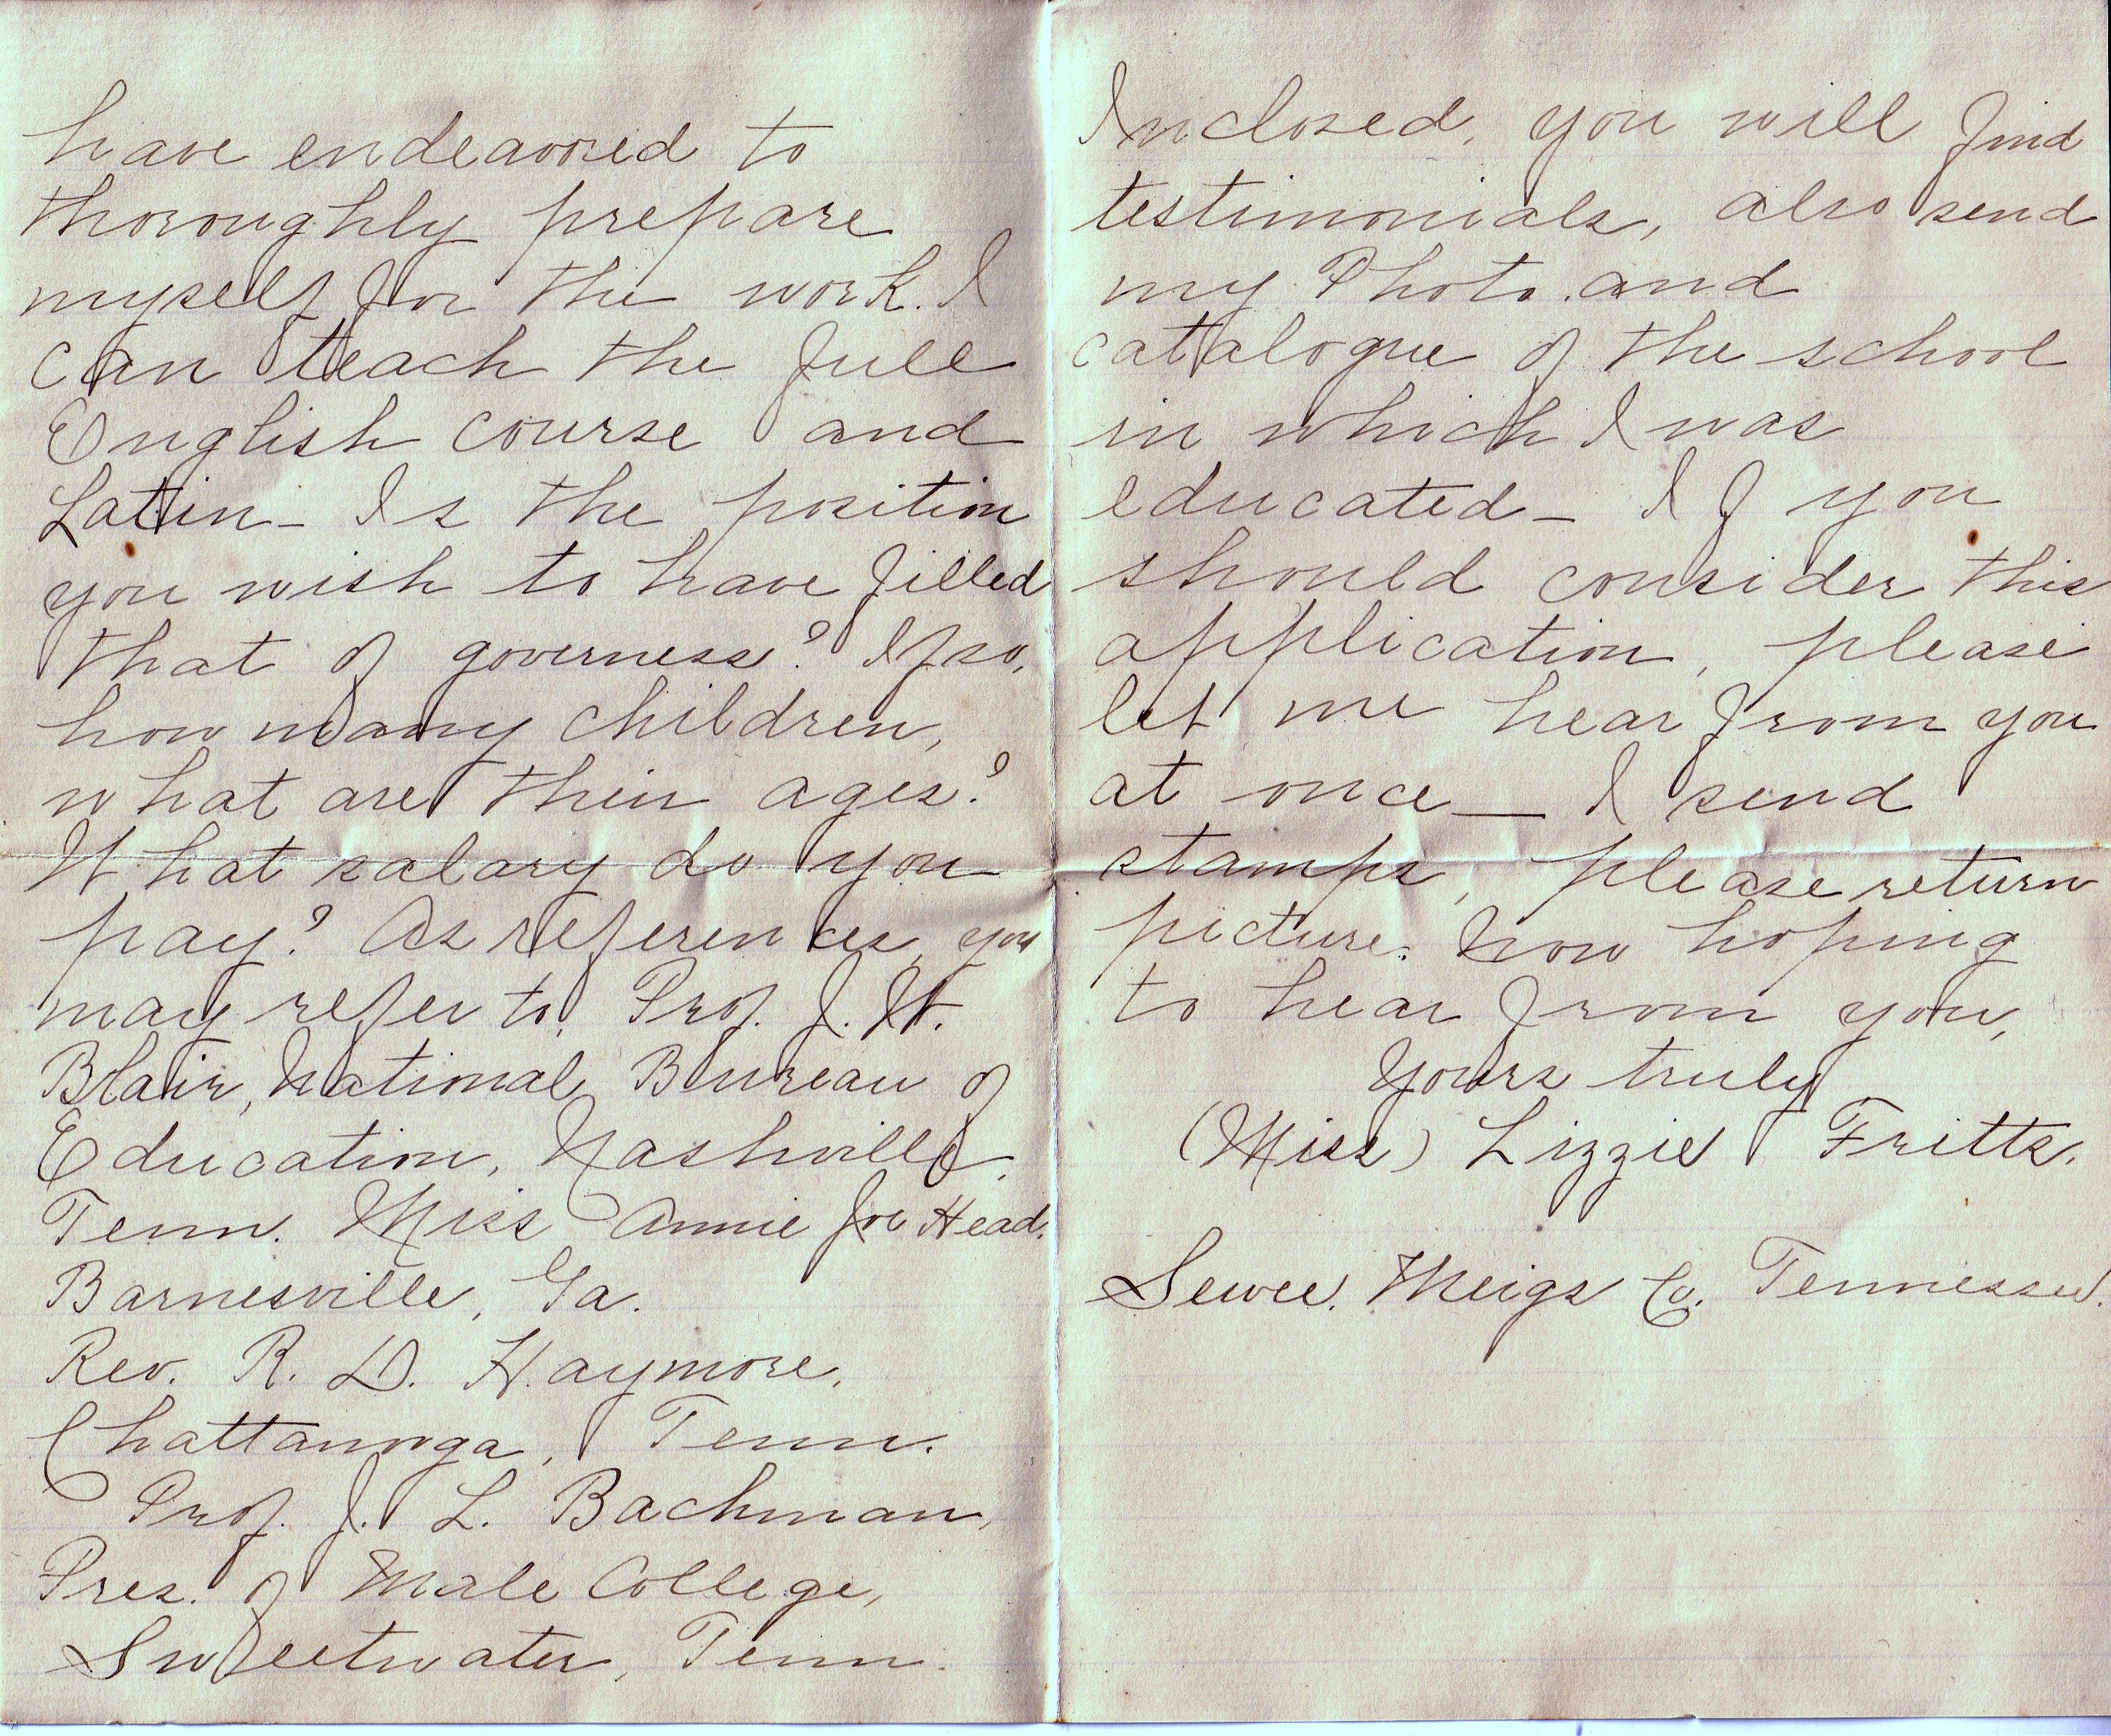 have endeavored to
thoroughly prepare
myself for the work. I
can teach the full
English course and
Latin - Is the position
you wish to have filled
that of governess? If so,
how many children,
what are their ages?
What salary do you
pay? As references, you
may refer to, Prof. J. W.
Blair, National Bureau of
Education, Nashville,
Tenn. Miss Annie Joe Head.
Barnesville, Ga.
Rev. R. D. Haymore,
Chattanooga, Tenn.
Prof. J. L. Bachman,
Pres. of Male College,
Sweetwater, Tenn.
Inclosed, you will find
testimonials, also send
my Photo. and
catalogue of the school
in which I was
educated - If you
should consider this
application, please
let me hear from you
at once — I send
stamps, please return
picture. Now hoping
to hear from you,
Yours truly
(Miss) Lizzie Fritts.
Sewee, Meigs Co. Tennessee.